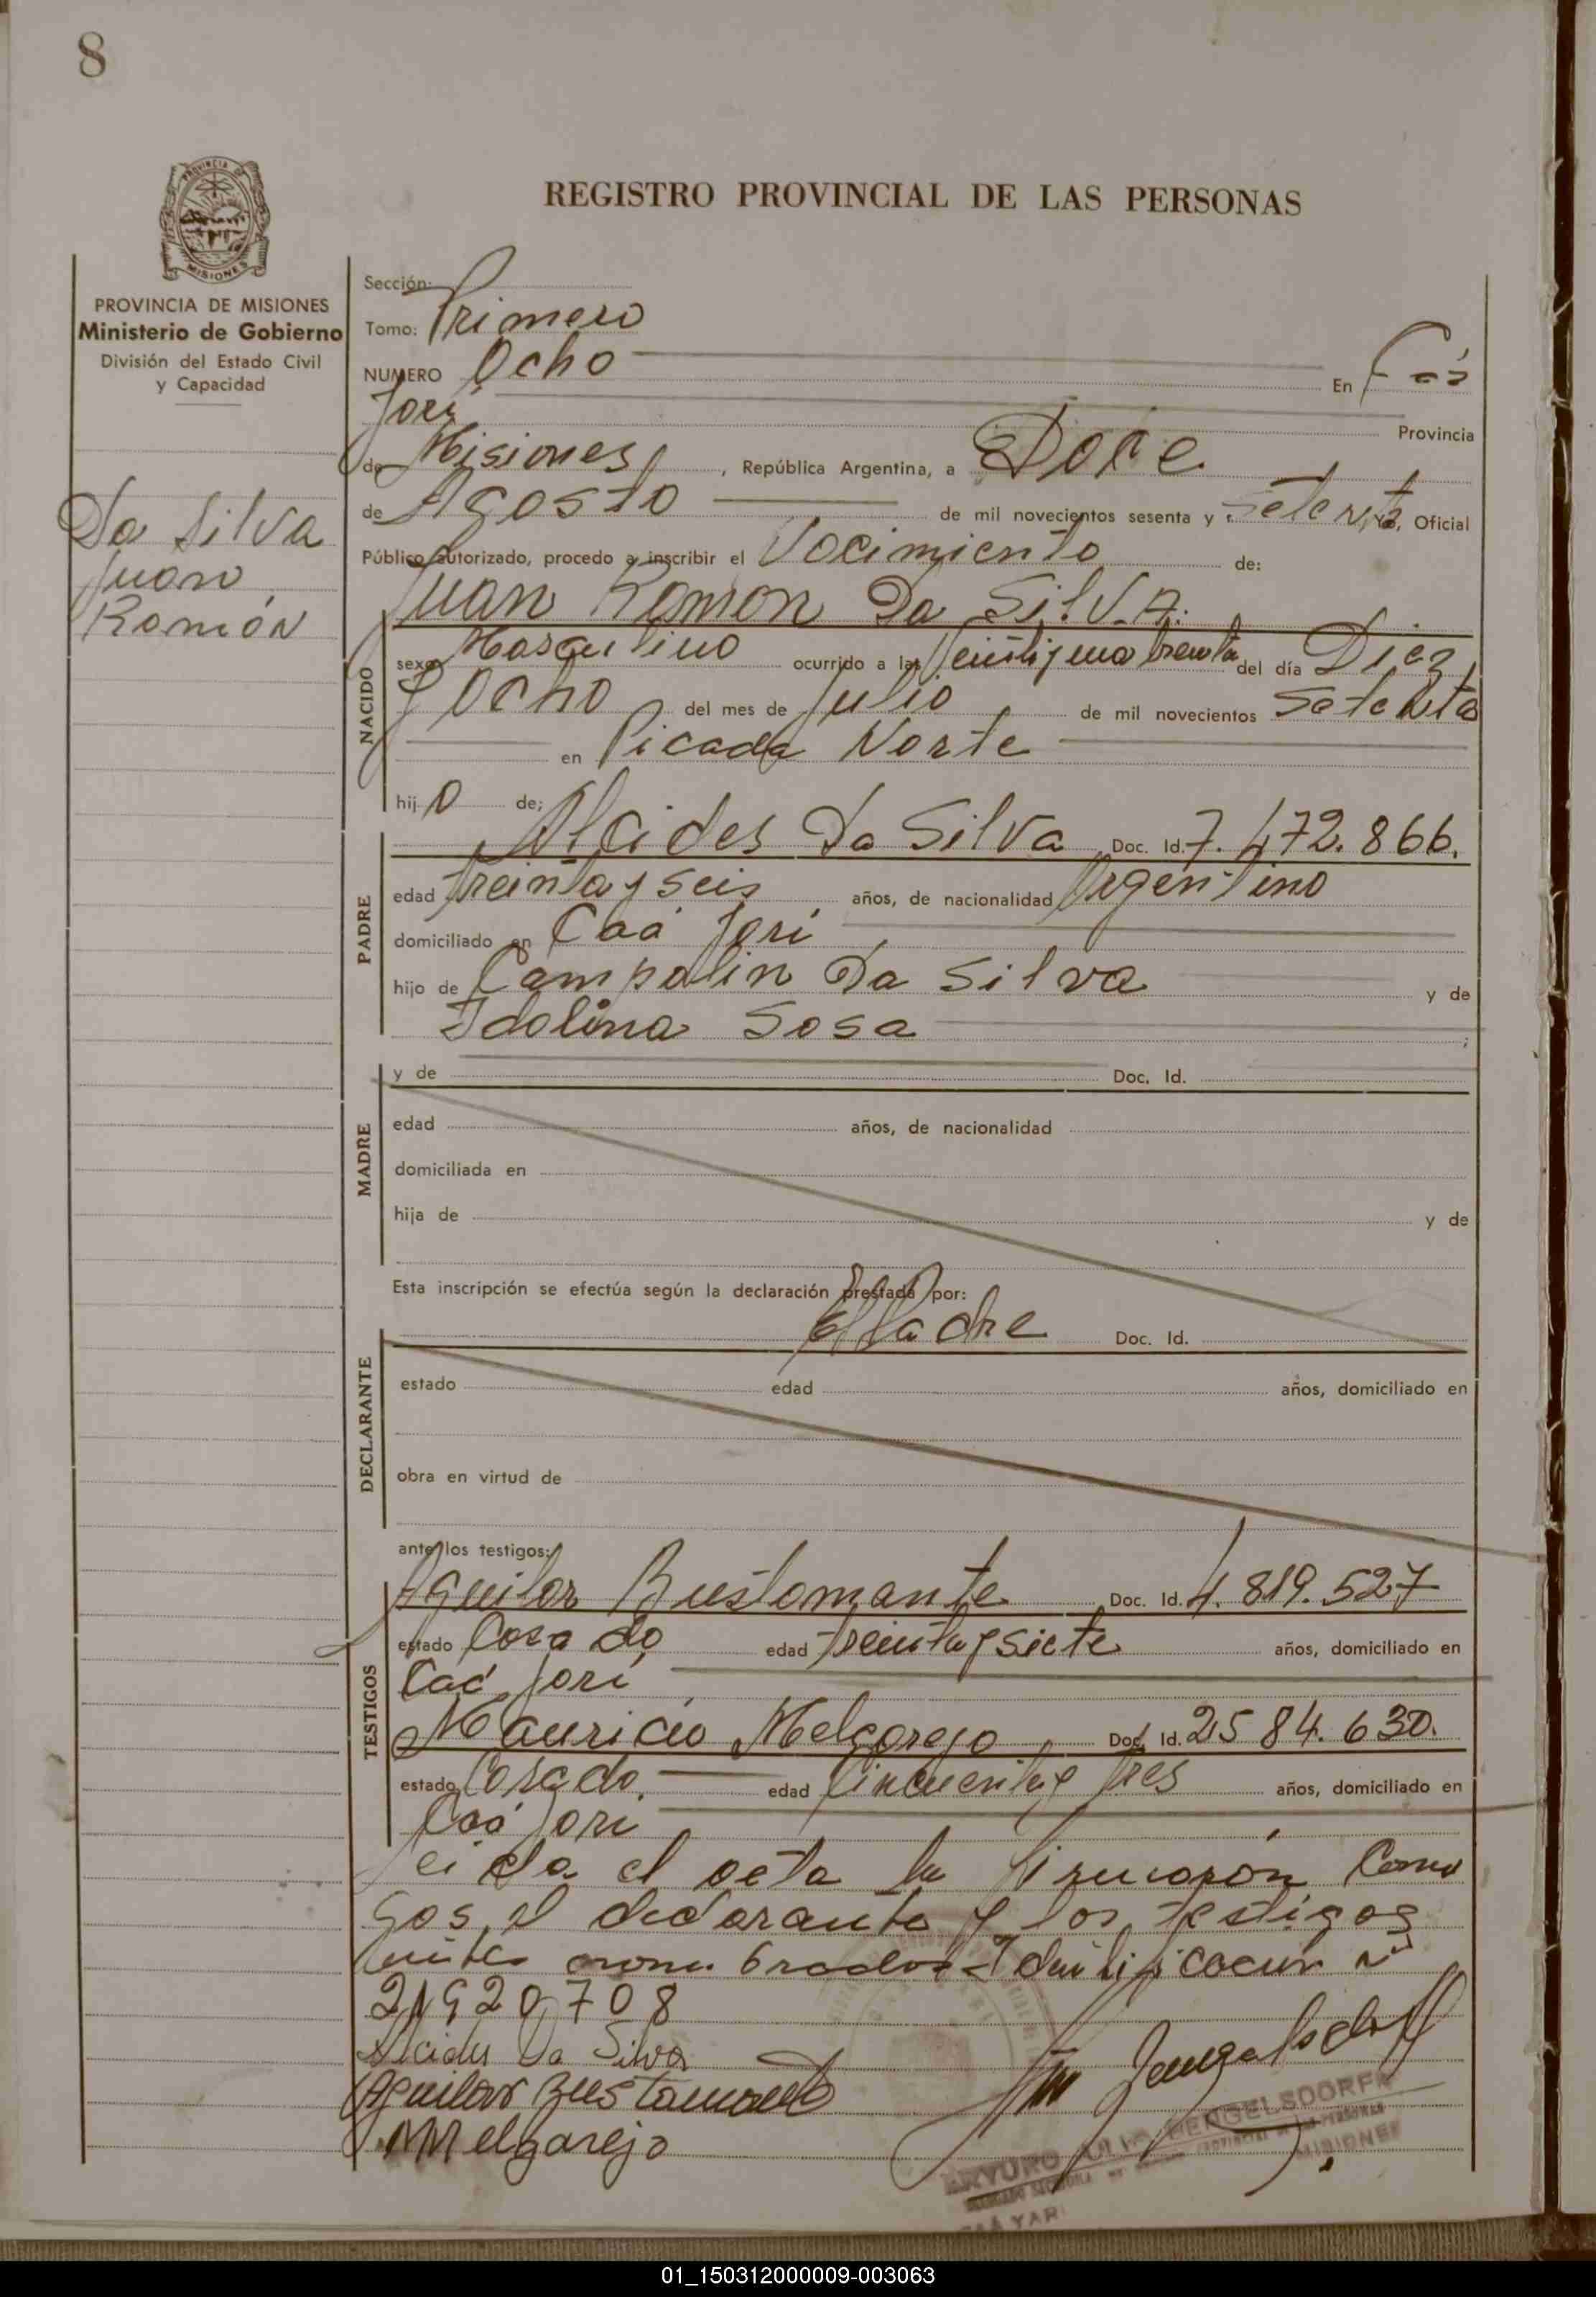 8
PROVINCIA DE
MISIONES
REGISTRO PROVINCIAL DE LAS PERSONAS
PROVINCIA DE MISIONES
Ministerio de Gobierno
División del Estado Civil
y Capacidad
Da Silva
Juan
Ramón
Sección:
Tomo: Primero
NUMERO Ocho En Caá
Jari Provincia
de Misiones, República Argentina, a Doce
de Agosto de mil novecientos sesenta y Setenta, Oficial
Público autorizado, procedo a inscribir el Nacimiento de:
Juan Ramon Da Silva.
NACIDO
sexo Masculino ocurrido a las Veintijuna treinta del día Diez
y Ocho del mes de Julio de mil novecientos Setenta
en Picada Norte
hij o de;
PADRE
Alcides Da Silva Doc. Id. 7.472.866.
edad treinta y seis años, de nacionalidad Argentino
domiciliado en Caá Jari
hijo de Campolin Da Silva y de
Idolina Sosa ;
MADRE
y de Doc. Id.
edad años, de nacionalidad
domiciliada en
hija de y de
Esta inscripción se efectúa según la declaración prestada por:
DECLARANTE
El Padre Doc. Id.
estado edad años, domiciliado en
obra en virtud de
ante los testigos:
TESTIGOS
Aguilar Bustamante Doc. Id. 4.819.527
estado Casado edad treinta y siete años, domiciliado en
Caá Jari
Mauricio Melgarejo Doc. Id. 2584.630.
estado Casado. edad Cincuenta y Tres años, domiciliado en
Caá Jari
Leida el acta la firmaron Con
el declarante y los testigos
antes nombrados
Alcides Da Silva
Aguilar Bustamante
M Melgarejo
ARTURO JULIO HENGELSDORFF
MISIONES
CAA YARI
01_150312000009-003063